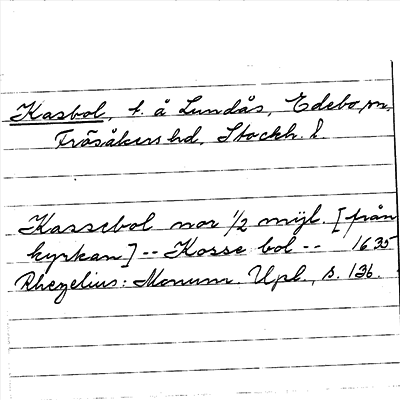 Kasbol, t. å Lundås, Edebo sn,
Frösåkers hd, Stockh. l.
Kassebol nor 1/2 mijl. [från
kyrkan] -- Kosse bol -- 1635
Rhezelius: Monum. Upl., s. 136.